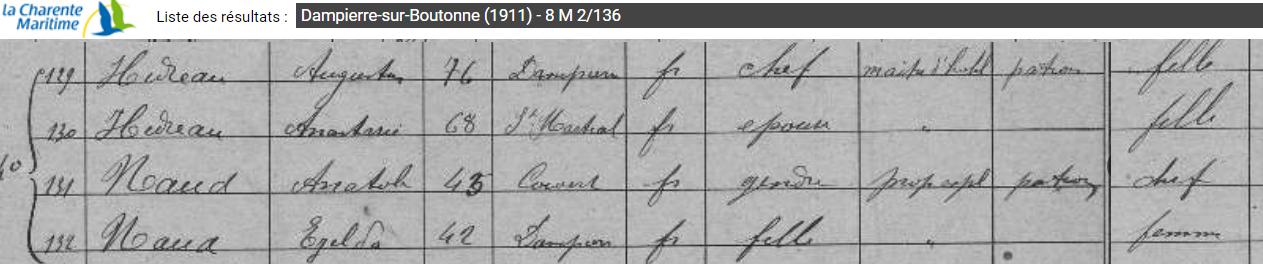 la Charente
Maritime
Liste des résultats : Dampierre-sur-Boutonne (1911) - 8 M 2/136
129 Hureau Augustin 76 Dampierre fr chef maitre d'hotel patron fille
130 Hureau Anastasie 68 St Martial fr epouse " fille
40
131 Naud Anatole 45 Couvert fr gendre prop expl patron chef
132 Naud Egelda 42 Dampierre fr fille " femme